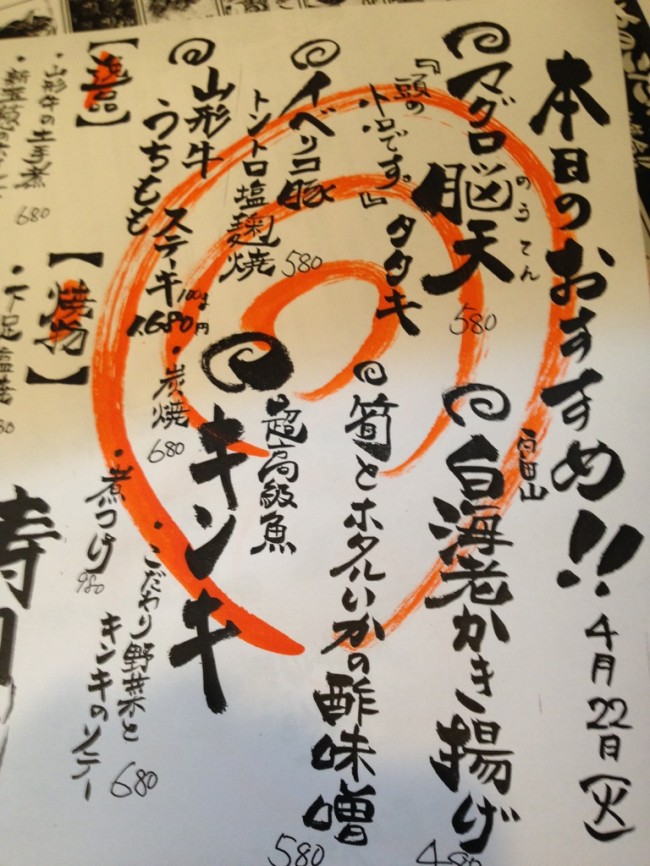 本日のおすすめ!!
4月22日(火)
マグロ脳天
のうてん
『頭の
トロです。』
タタキ
580
富山
白海老かき揚げ
480
イベリコ豚
トントロ塩麹焼
580
筍とホタルいかの酢味噌
580
山形牛
うちもも
ステーキ100g
1,680円
超高級魚
キンキ
・炭焼
680
・煮つけ
980
・こだわり野菜と
キンキのソテー
680
【逸品】
・山形牛の土手煮
680
【焼物】
・下足塩焼
寿司